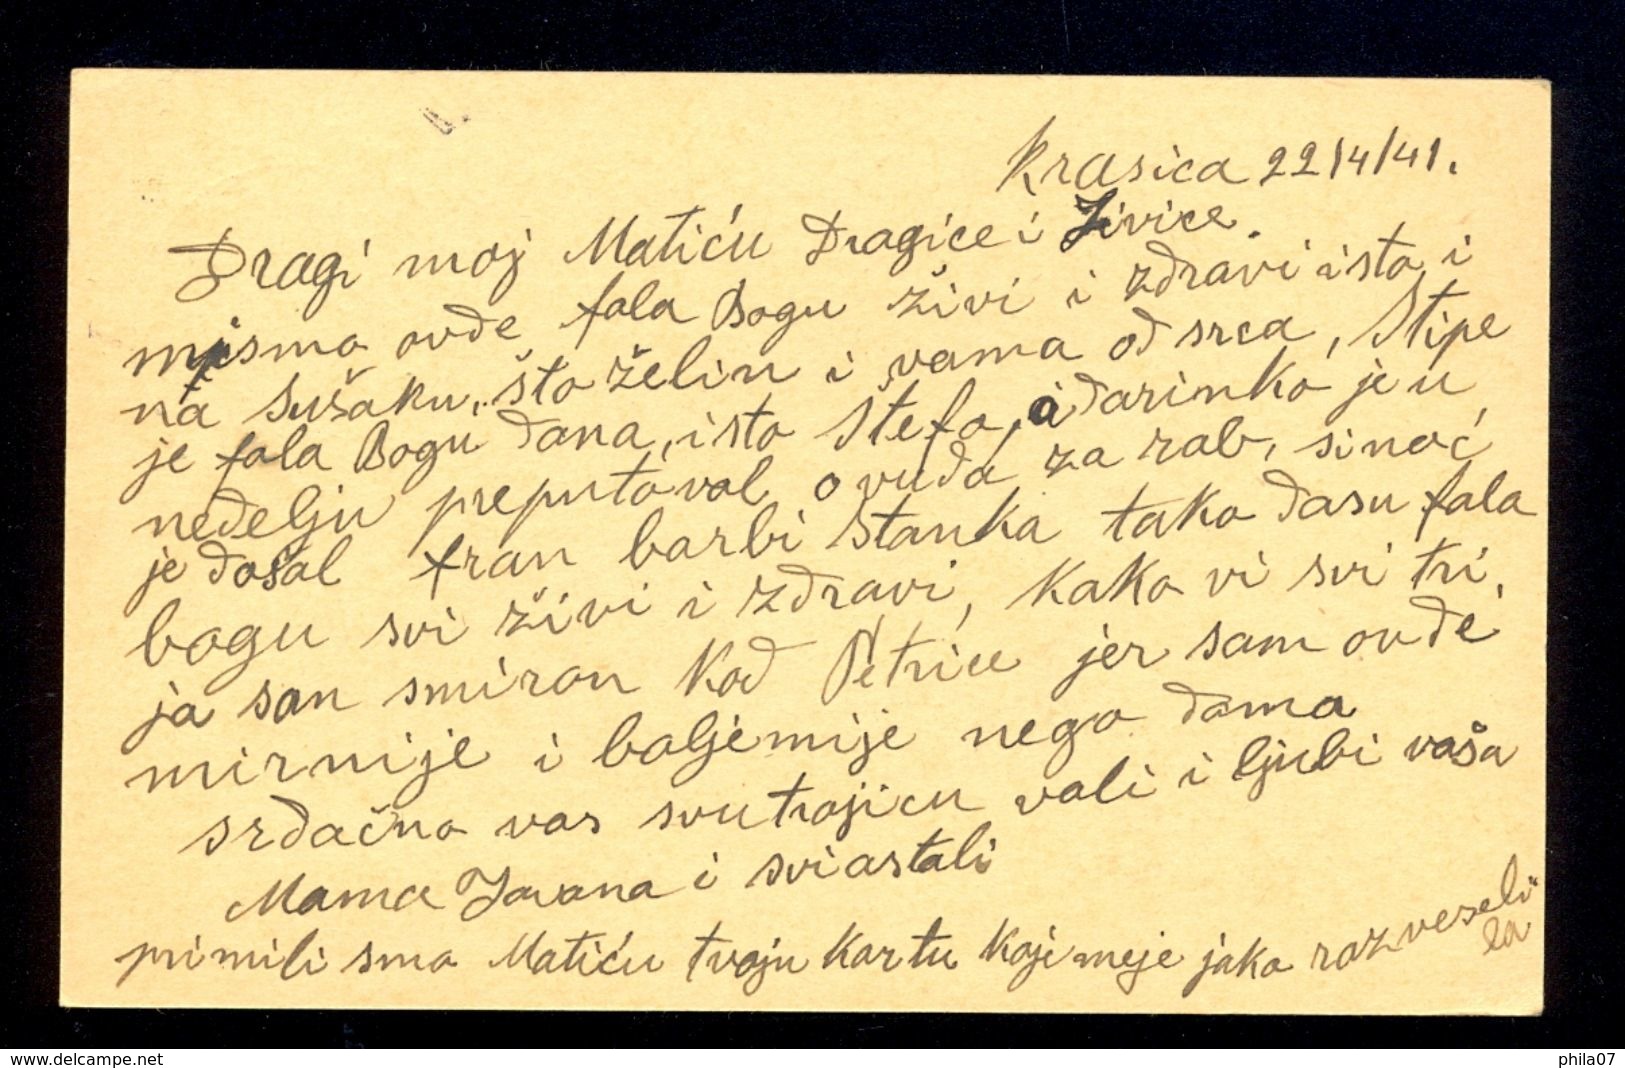 Krasica 22/4/41.
Dragi moj Matiću Dragice i Živice.
mismo ovđe fala Bogu živi i zdravi isto i
na Sušaku, što želin i vama od srca, Stipe
je fala Bogu doma, isto Štefo, a darinko je u
neđelju preputoval ovuda za rab, sinoć
je došal fran barbi Stanka tako dasu fala
bogu svi živi i zdravi, kako vi svi tri,
ja san smiron kod Petrice jer sam ovđe
mirnije i boljemije nego doma
srdačno vas svu trojicu voli i ljubi vaša
Mama Jovana i sviostali
primili smo Matiću tvoju kartu koje meje jako razveseli
la
www.delcampe.net
phila07